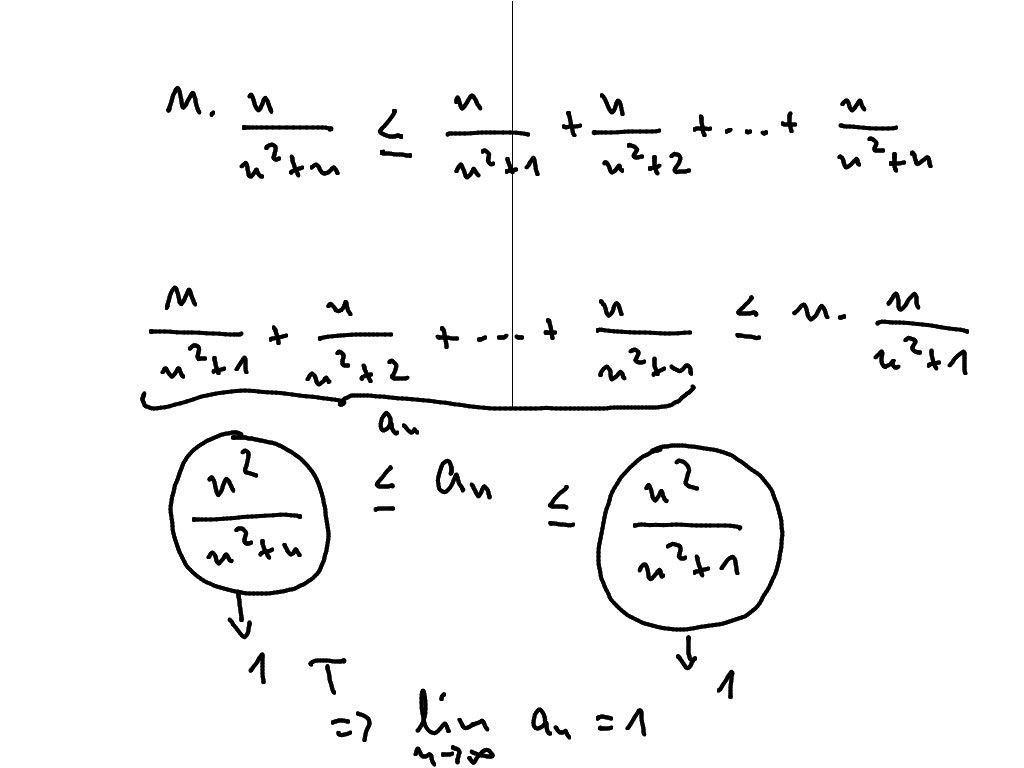 n · n/(n²+n) ≤ n/(n²+1) + n/(n²+2) + ... + n/(n²+n)
n/(n²+1) + n/(n²+2) + ... + n/(n²+n) ≤ n · n/(n²+1)
aₙ
n²/(n²+n) ≤ aₙ ≤ n²/(n²+1)
↓ ↓
1 T 1
=> lim n→∞ aₙ = 1